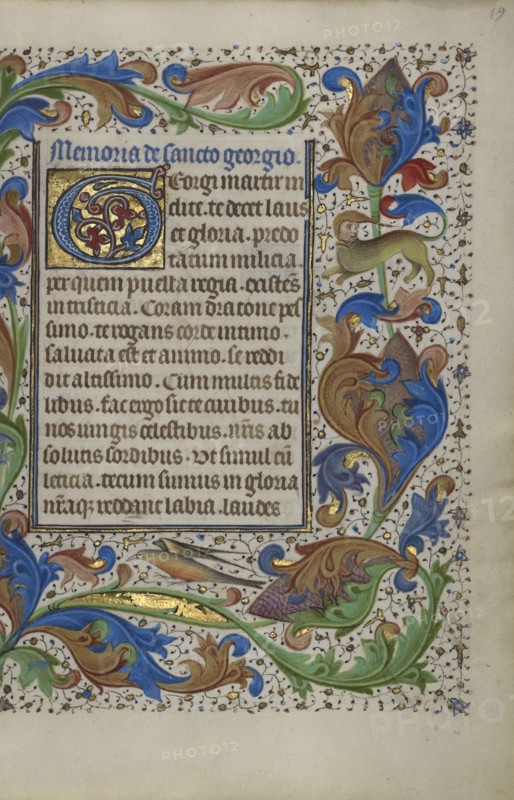 19
Memoria de sancto georgio.
GEorgi martir in
clite. te decet laus
et gloria. predo
tatum milicia
per quem puella regia. existēs
in tristicia. Coram dracone pes
simo. te rogans corde intimo.
saluata est et animo. se reddi
dit altissimo. Cum multis fide
libus. fac ergo sic te ciuibus. tu
nos iungis celestibus. nr̄is ab
solutis sordibus. Vt simul cū
leticia. tecum simus in gloria
nr̄aq; reddant labia. laudes
PHOTO12